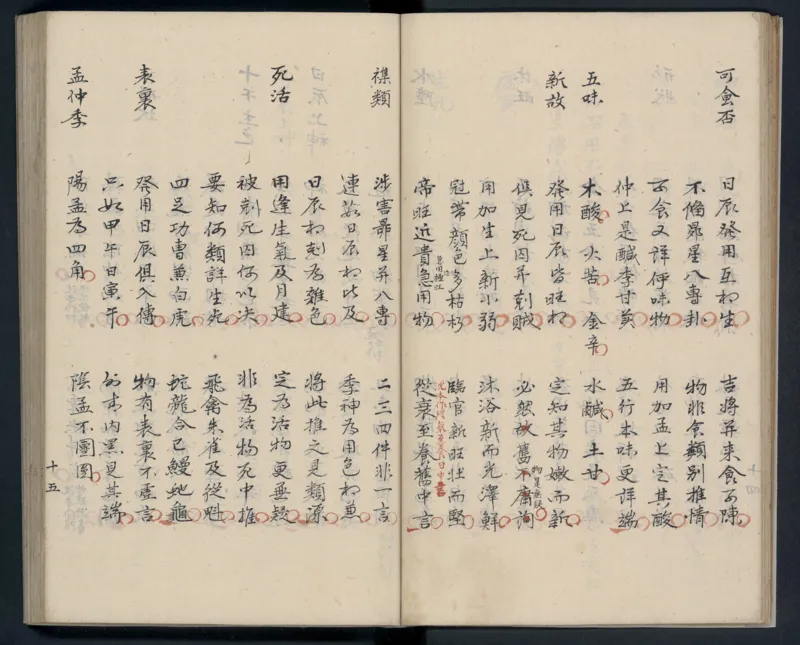 可食否 日辰發用互相生 吉將并來食可陳
不偹昴星八專卦 物非食類別推情
可食又詳何味物 用加孟上定其酸
仲上是鹹季甘美 五行本味更詳端
五味 木酸 火苦 金辛 水鹹 土甘
新故 發用日辰皆旺相 定知其物嫩而新
俱見死囚并刻賊 必然故舊不庸詢
物是無疑
用加生上新小弱 沐浴新而光澤鮮
冠帶顏色多枯杇 臨官新旺壯而堅
帝旺近貴急用物 從衰至養舊中言
襍類 涉害昴星并八專 二三四件非一言
連茹日辰相比及 季神為用色相兼
日辰相刻為雜色 將此推之是類源
死活 用逢生氣及月建 定為活物更無疑
被刻死囚何以决 非為活物死中推
要知何類詳生死 飛禽朱雀及從魁
四足功曹兼白虎 蛇龍合巳鰻虵龜
表裏 發用日辰俱入傳 物有表裏不虛言
只如甲午日寅午 外青內黑見其端
孟仲季 陽孟為四角 陰孟不圖圓
十五